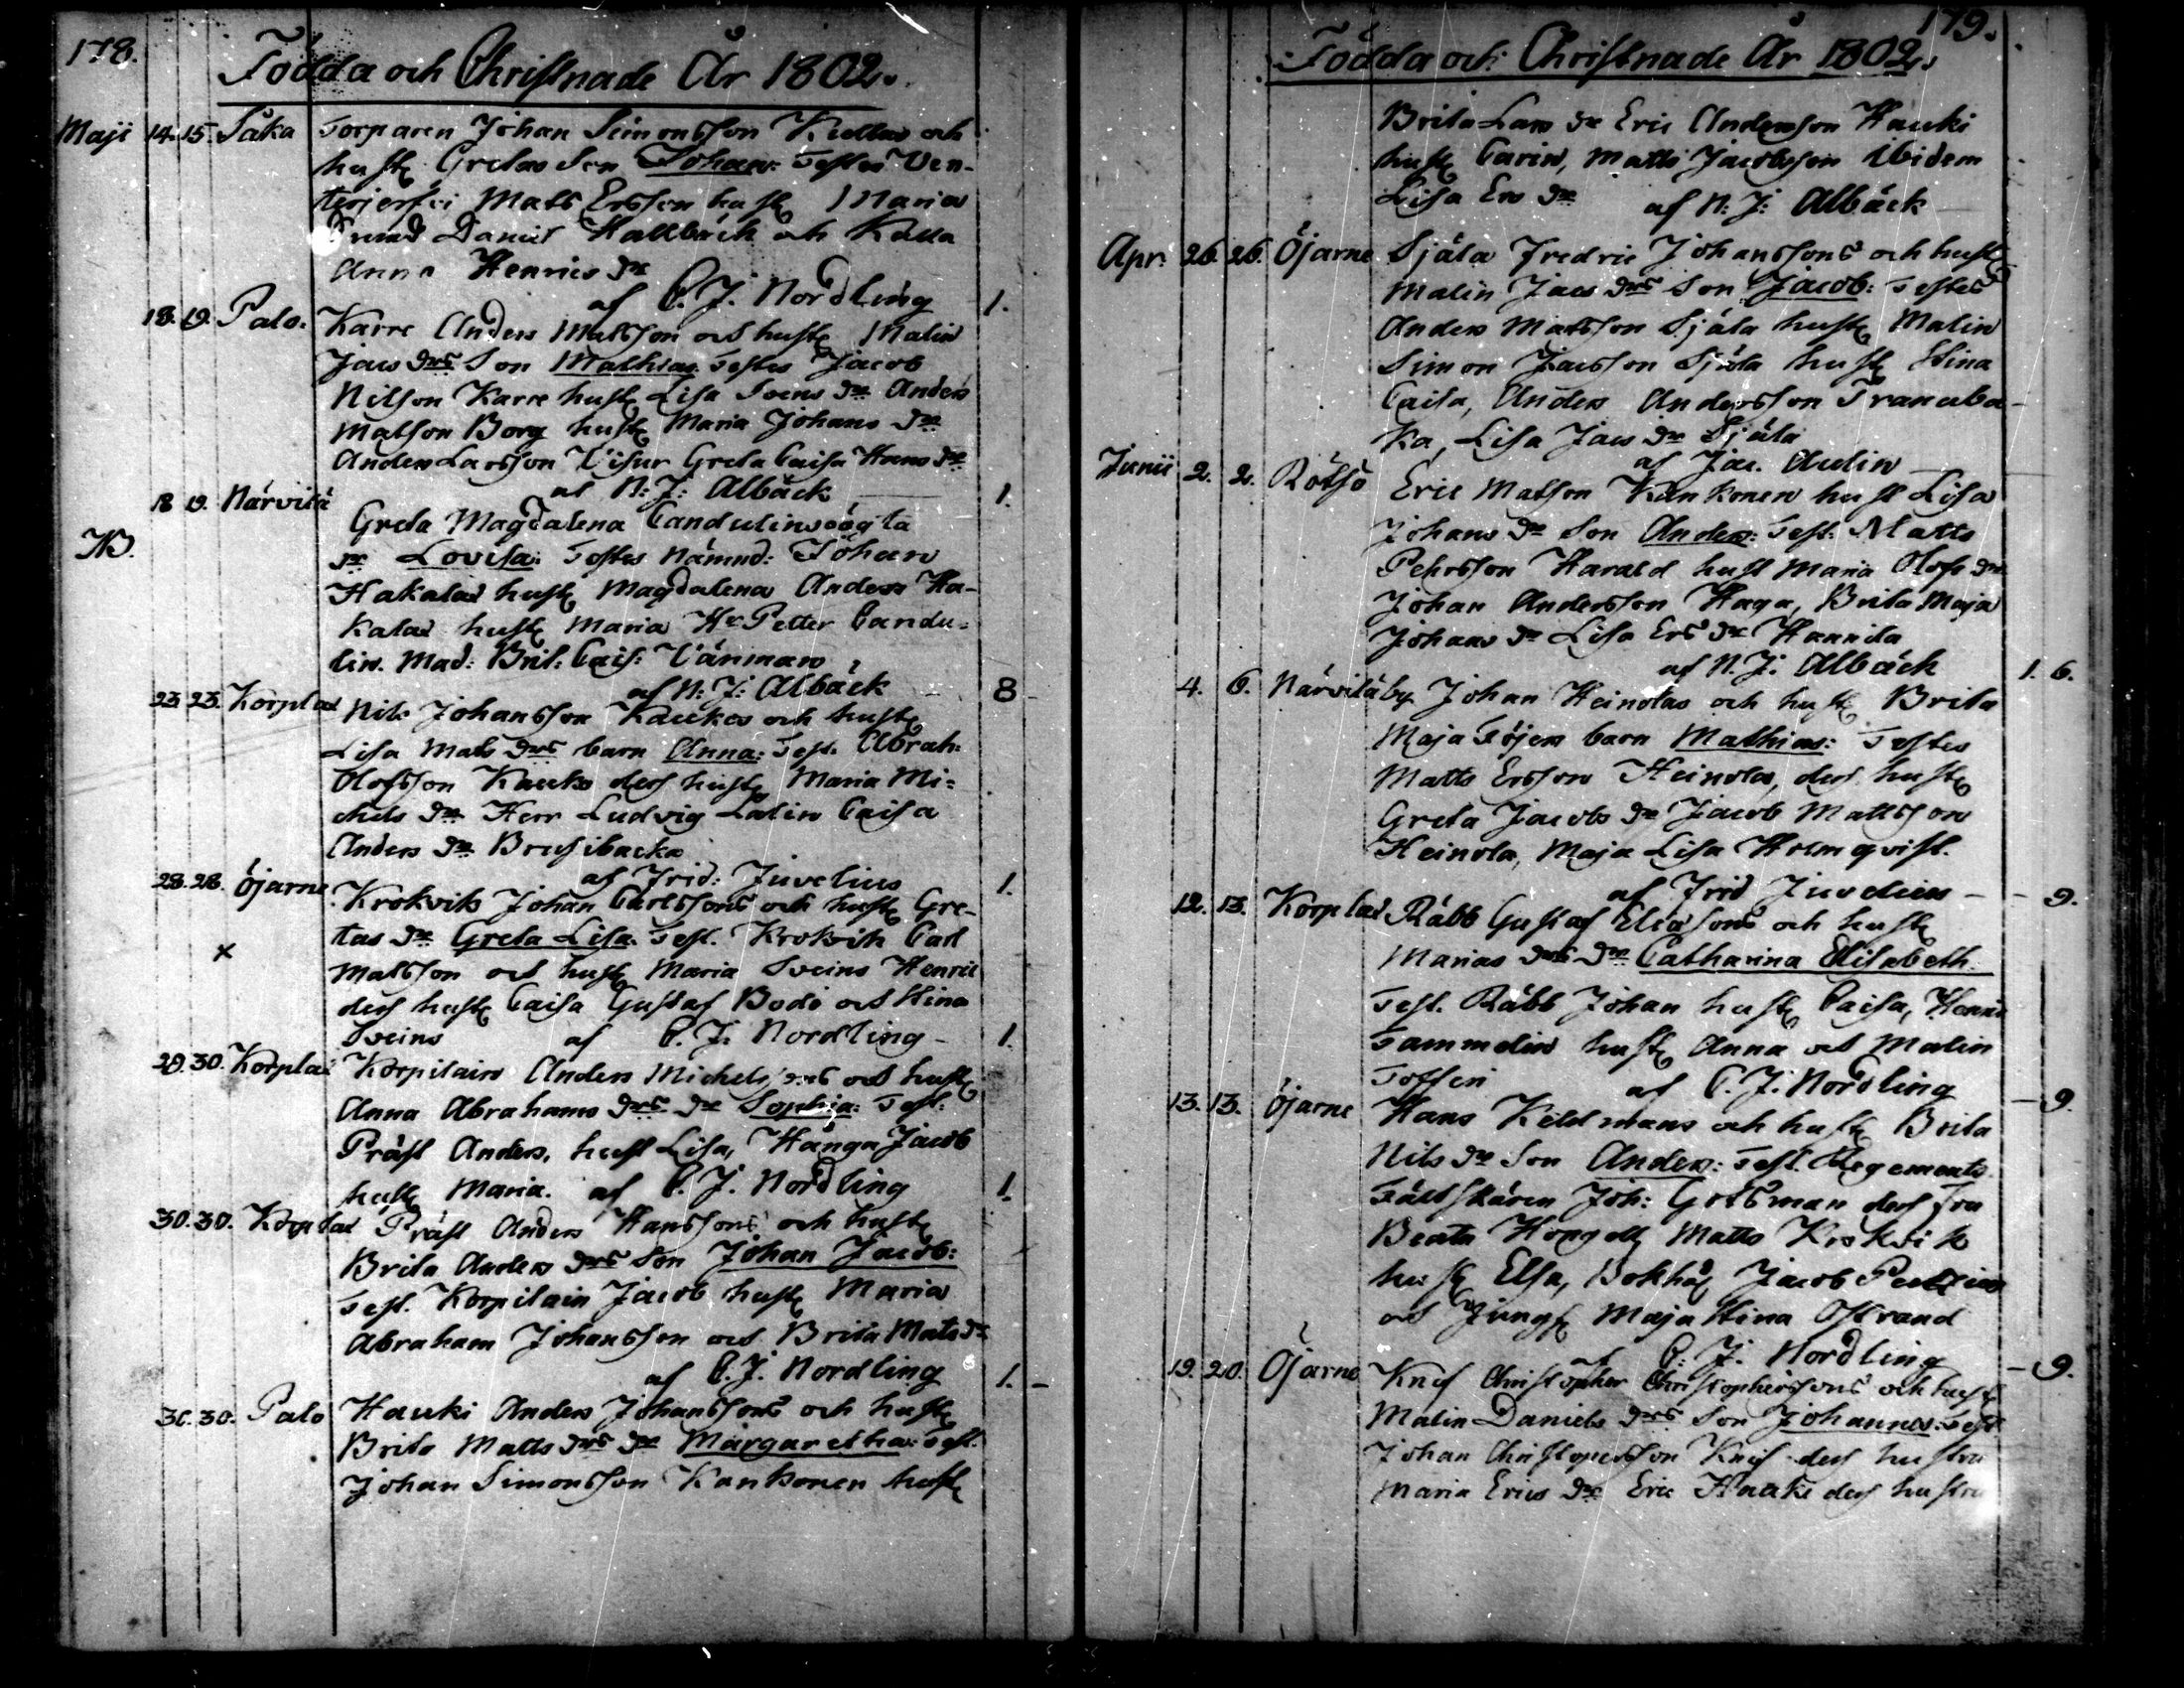 178.
Födda och Christnade År 1802.
Maji 14. 15. Såka Torparen Johan Simonsson Kullas och
hust Gretas Son Johan: Testes Ven-
terjerfvi Mats Ersson hust Maria
Daniel Hallbäck och Kulla
Anna Henrics dr
af C. J. Nordling 1.
18. 19. Palo. Karre Anders Matsson och hust Malin
Jacs drs Son Mathias: Testes Jacob
Nilson Karre hust Lisa Svens dr Anders
Matson Borg hust Maria Johans dr
Anders Larsson Greta Caisa Hans dr
af N: J: Albäck 1.
18 19. Närvilä
NB.
Greta Magdalena Candulins oägta
dr Lovisa: Testes Nämnd: Johan
Hakalax hust Magdalena Anders Ha-
kalax hust Maria Hr Petter Candu-
lin. Mad: Brit: Cais: Vänman
af N: J: Albäck 8
23. 23. Korplax Nils Johansson Kaukos och hust
Lisa Mats drs barn Anna: Test. Abrah:
Olofsson Kauko des hust Maria Mi-
chels dr Herr Ludvig Lalin Caisa
Anders dr Brusibacka
af Frid: Juvelius 1.
28. 28. Öjarne Krokviks Johan Carlssons och hust Gre-
tas dr Greta Lisa. Test. Krokvik Carl
×
Matsson och hust Maria Sveins Henric
des hust Caisa Gustaf Bodö och Stina
Sveins af C. J. Nordling 1.
29. 30. Korplax Korpilain Anders Michelssons och hust
Anna Abrahams drs dr Sophia: Test:
Präst Anders, hust Lisa, Hånga Jacob
hust Maria. af C. J. Nordling 1.
30. 30. Korplax Präst Anders Hanssons och hust
Brita Anders drs Son Johan Jacob:
Test. Korpilain Jacob hust Maria
Abraham Johansson och Brita Mats dr
af C. J. Nordling 1.
30. 30. Palo Hauki Anders Johanssons och hust
Brita Matts drs dr Margaretha: Test.
Johan Simonsson Kankonen hust
179.
Födda och Christnade År 1802.
Brita Lars dr Eric Andersson Hauki
hust Carin, Matts Jacobsson Ibidem
Lisa Ers dr af N: J: Albäck
Apr. 26. 26. Öjarne Själa Fredric Johanssons och hust
Malin Jacs drs Son Jacob: Testes
Anders Matsson Själa hust Malin
Simon Jacsson Själa hust Stina
Caisa, Anders Andersson Tranuba-
ka, Lisa Jacs dr Själa
af Jac. Aulin
Junii 2. 2. Rötsö Eric Matson Kankonen hust Lisa
Johans dr Son Anders: Test: Matts
Pehrsson Harald hust Maria Olofs dr
Johan Andersson Haga, Brita Maja
Johans dr Lisa Ers dr Hannila
af N. J. Albäck 1. 6.
4. 6. Närvilä by Johan Heinolas och hust Brita
Maja Töjers barn Mathias: Testes
Matts Ersson Heinola, des hust
Greta Jacobs dr Jacob Mattsson
Heinola, Maja Lisa Holmqvist.
af Frid Juvelius 9.
12. 13. Korplax Räbb Gustaf Eliassons och hust
Marias drs dr Catharina Elisabeth
Test. Räbb Johan hust Caisa, Henric
Tammelin hust Anna och Malin
Toffen af C. J. Nordling
13. 13. Öjarne Hans Keldmans och hust Brita 9.
Nils dr Son Anders: Test. Regements
Fältskären Joh: Gotsman des Fru
Beata Matts Krokvik
hust Elsa, Bokhål Jacob
och Jungf Maja Stina Ostrand
af C. J. Nordling
19. 20. Öjarne Knif Christopher Christopherssons och hust 9.
Malin Daniels drs Son Johannes: Test
Johan Christopersson Knif des hustru
Maria Erics dr Eric Hauki des hustru